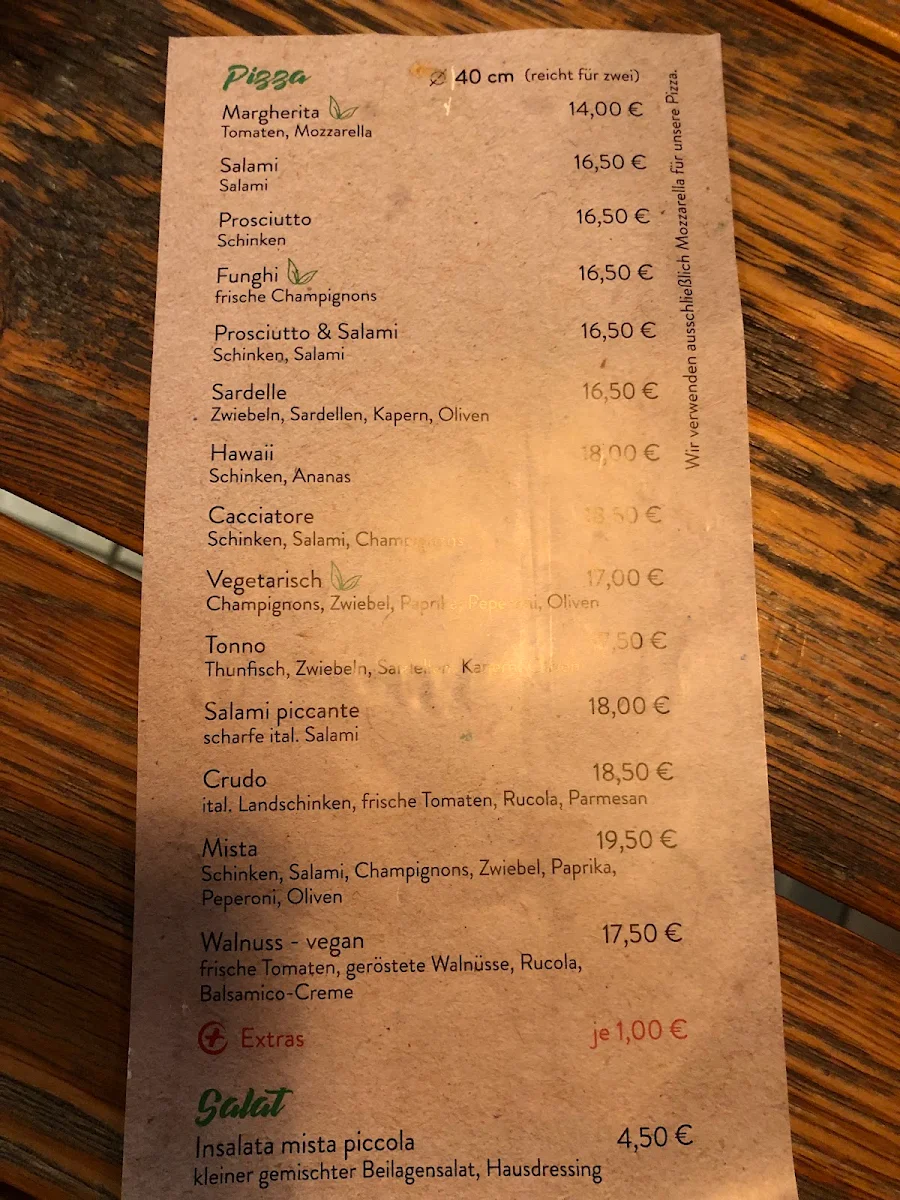 Pizza ⌀ 40 cm (reicht für zwei)
Margherita 14,00 €
Tomaten, Mozzarella
Salami 16,50 €
Salami
Prosciutto 16,50 €
Schinken
Funghi 16,50 €
frische Champignons
Prosciutto & Salami 16,50 €
Schinken, Salami
Sardelle 16,50 €
Zwiebeln, Sardellen, Kapern, Oliven
Hawaii 18,00 €
Schinken, Ananas
Cacciatore
Schinken, Salami, Champignons
Vegetarisch 17,00 €
Champignons, Zwiebel, Paprika, Peperoni, Oliven
Tonno
Thunfisch, Zwiebeln, Sardellen,
Salami piccante 18,00 €
scharfe ital. Salami
Crudo 18,50 €
ital. Landschinken, frische Tomaten, Rucola, Parmesan
Mista 19,50 €
Schinken, Salami, Champignons, Zwiebel, Paprika,
Peperoni, Oliven
Walnuss - vegan 17,50 €
frische Tomaten, geröstete Walnüsse, Rucola,
Balsamico-Creme
+ Extras je 1,00 €
Salat
Insalata mista piccola 4,50 €
kleiner gemischter Beilagensalat, Hausdressing
Wir verwenden ausschließlich Mozzarella für unsere Pizza.